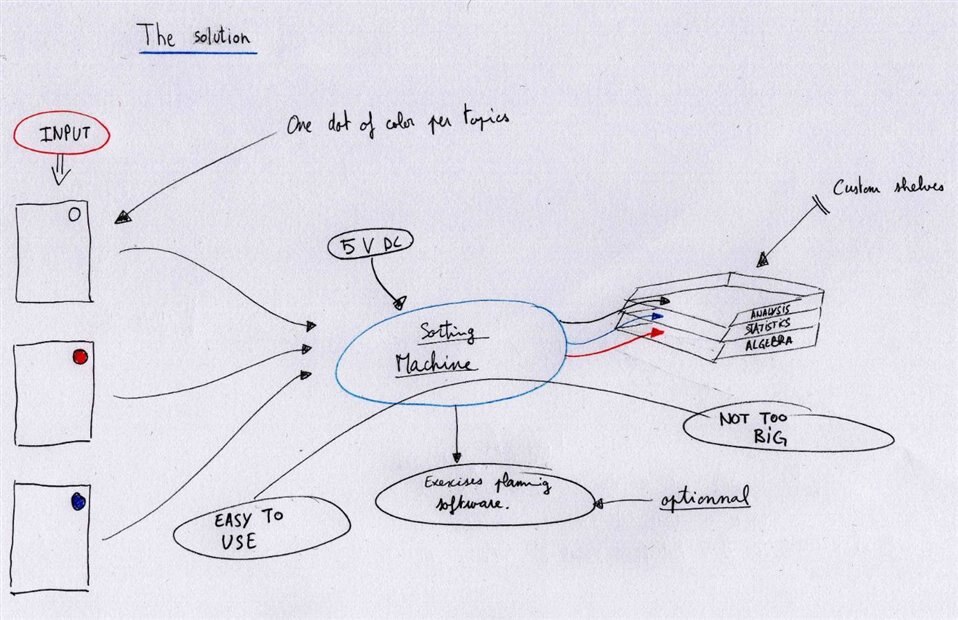 The solution
INPUT
One dot of color per topics
Custom shelves
5 V DC
Sotting
Machine
ANALYSIS
STATISTICS
ALGEBRA
NOT TOO
BIG
Exexises planning
software.
optionnal
EASY TO
USE